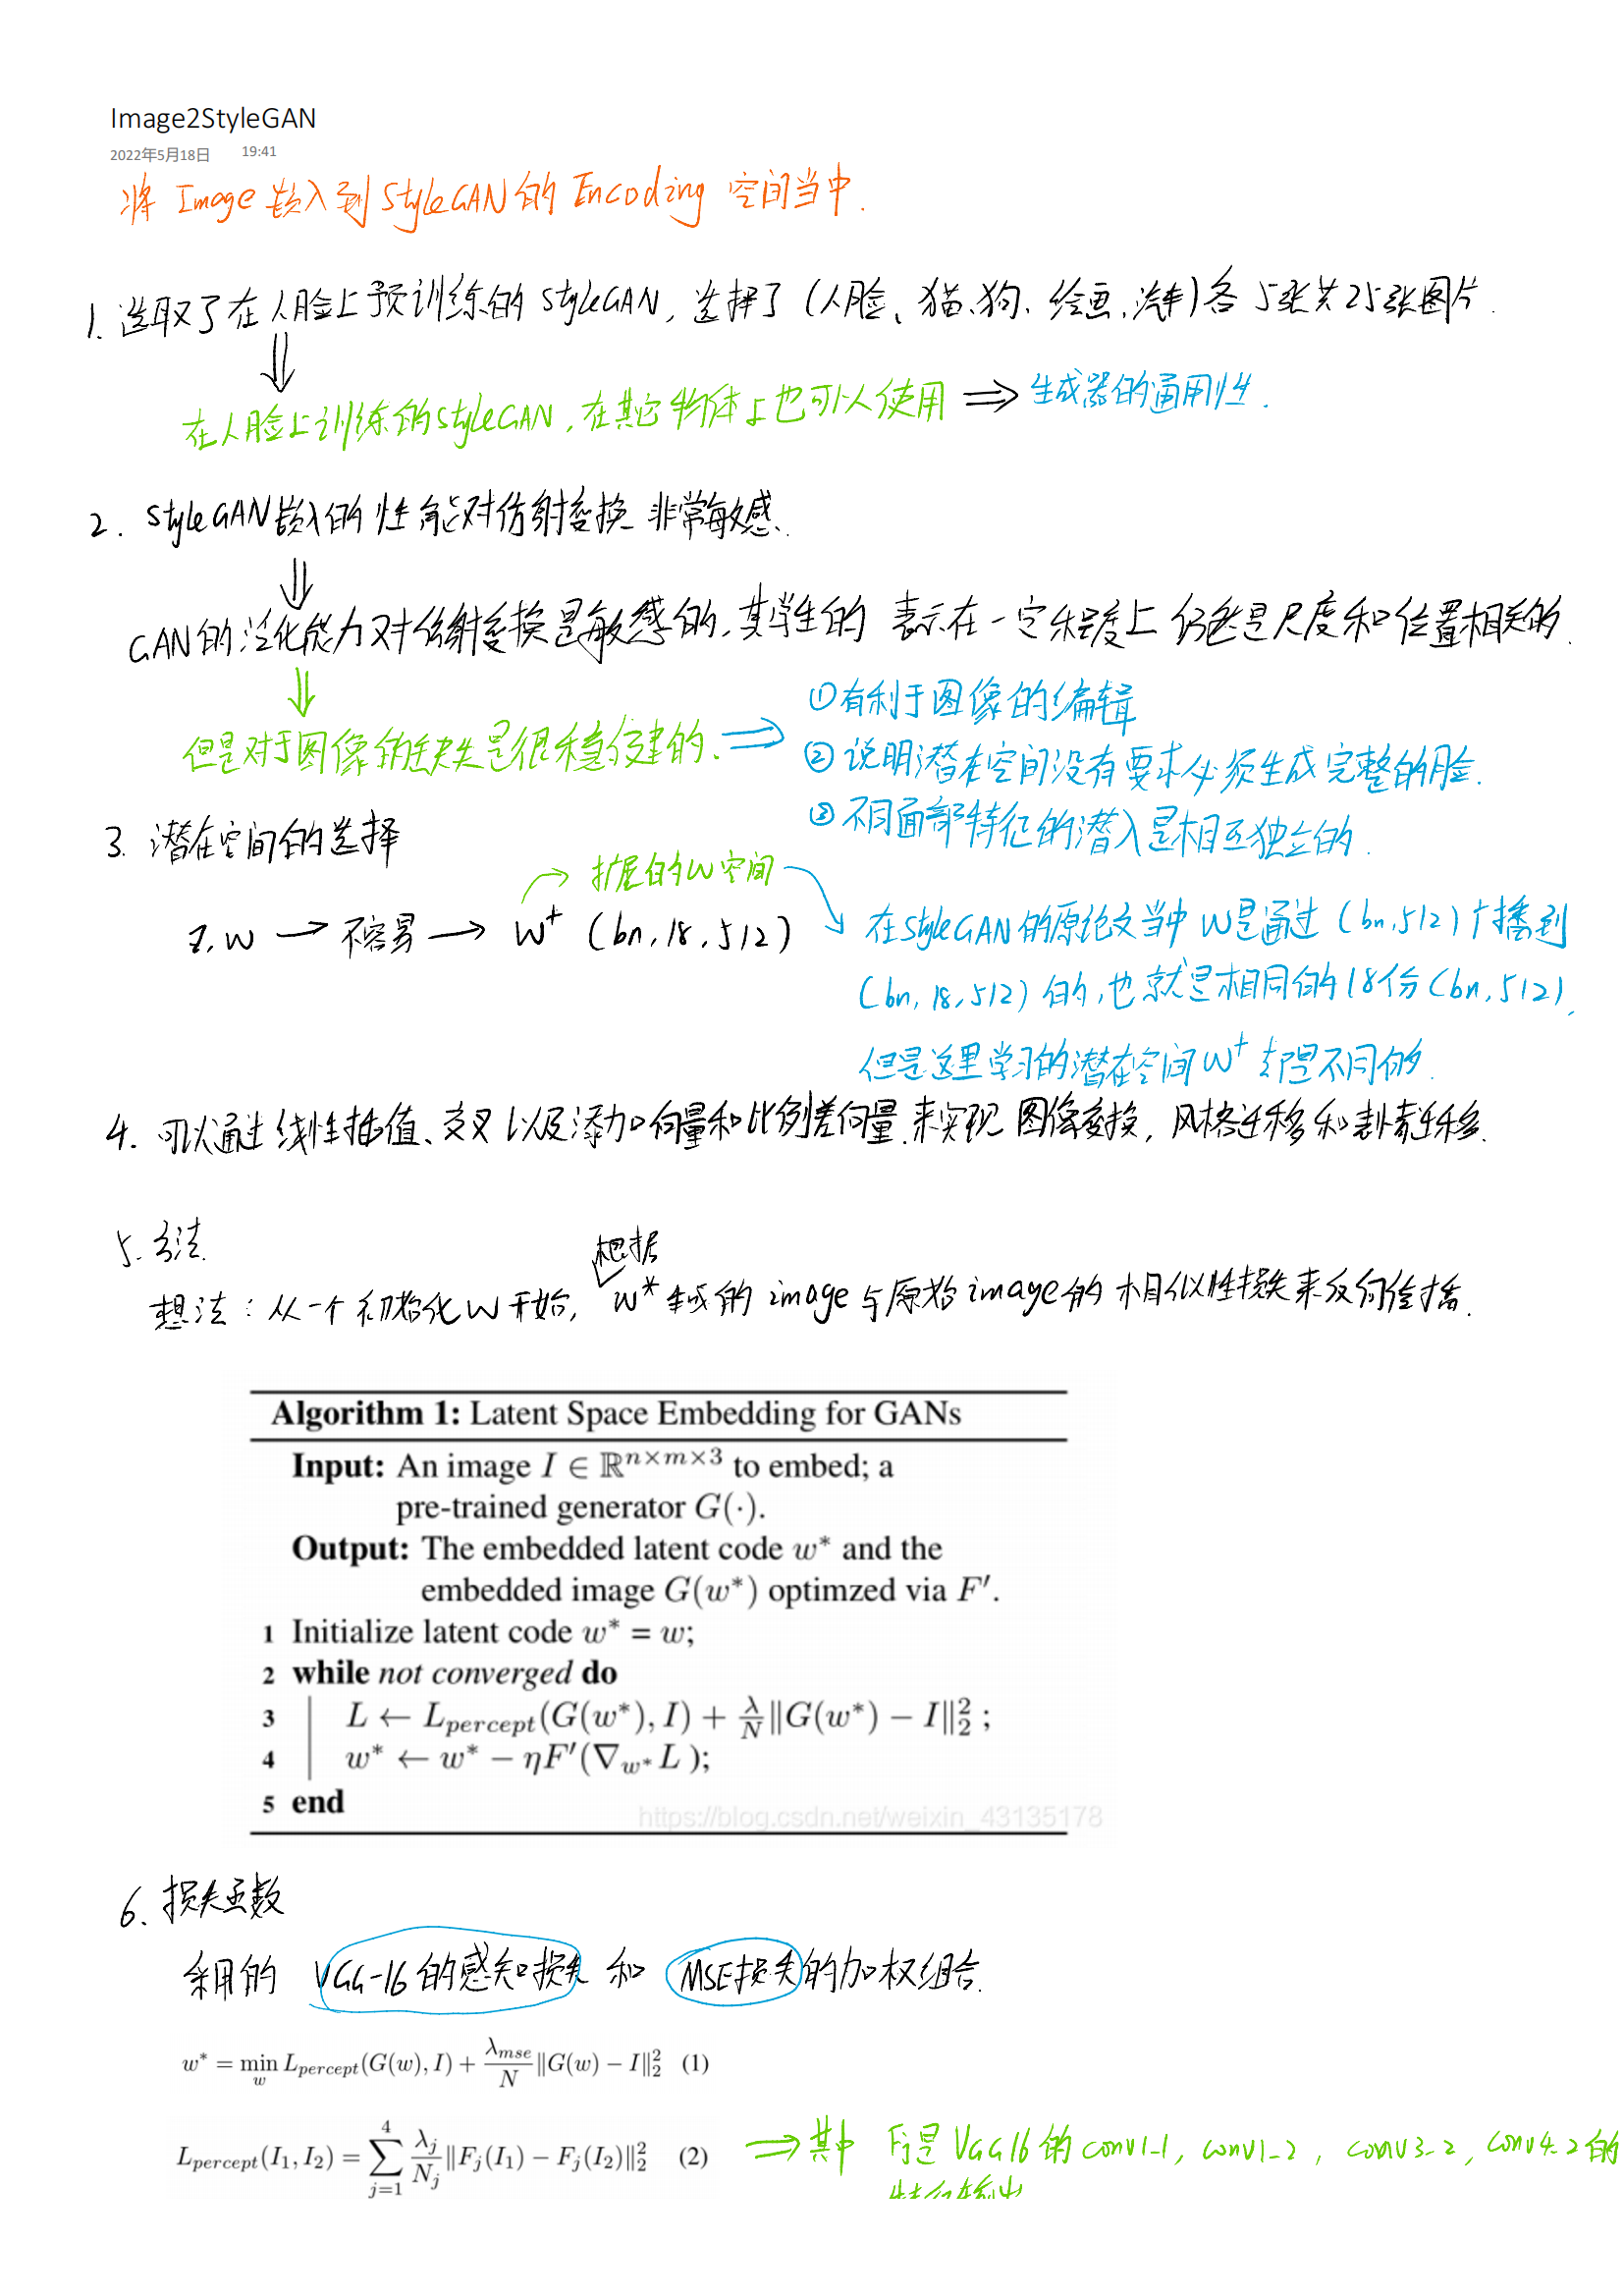 Image2StyleGAN
2022年5月18日 19:41
将 Image 嵌入到 StyleGAN 的 Encoding 空间当中.
1. 选取了在人脸上预训练的 StyleGAN, 选择了 (人脸、猫、狗、绘画、汽车) 各 5张共25张图片.
在人脸上训练的StyleGAN, 在其它物体上也可以使用 ⇒ 生成器的通用性.
2. StyleGAN嵌入的性能对仿射变换 非常敏感.
GAN的泛化能力对仿射变换是敏感的, 其学生的 表示在一定程度上 仍然是尺度和位置相关的.
但是对于图像的缺失是很稳健的. ⇒ ①有利于图像的编辑
②说明潜在空间没有要求必须生成完整的脸.
③不同面部特征的潜入是相互独立的.
3. 潜在空间的选择
扩展的W空间
z, w → 不容易 → W⁺ (bn, 18, 512)
在StyleGAN的原论文当中 W是通过 (bn, 512) 广播到
(bn, 18, 512) 的, 也就是相同的18份(bn, 512),
但是这里学习的潜在空间W⁺ 都是不同的.
4. 可以通过线性插值、交叉以及添加向量和比例差向量.来实现 图像变换, 风格迁移和表情迁移.
5. 方法.
根据
想法: 从一个初始化W开始, w* 生成的 image 与原始image的 相似性损失来反向传播.
Algorithm 1: Latent Space Embedding for GANs
Input: An image I ∈ ℝ^{n×m×3} to embed; a
pre-trained generator G(·).
Output: The embedded latent code w* and the
embedded image G(w*) optimzed via F′.
1 Initialize latent code w* = w;
2 while not converged do
3 L ← L_{percept}(G(w*), I) + \frac{λ}{N}‖G(w*) − I‖_2^2 ;
4 w* ← w* − ηF′(∇_{w*} L );
5 end
https://blog.csdn.net/weixin_43135178
6. 损失函数
采用的 VGG-16的感知损失 和 MSE损失的加权组合.
w* = \min_w L_{percept}(G(w), I) + \frac{λ_{mse}}{N}‖G(w) − I‖_2^2 (1)
L_{percept}(I_1, I_2) = \sum_{j=1}^{4} \frac{λ_j}{N_j}‖F_j(I_1) − F_j(I_2)‖_2^2 (2) ⇒ 其中 Fj是 VGG16 的 conv1-1, conv1-2, conv3-2, conv4-2 的